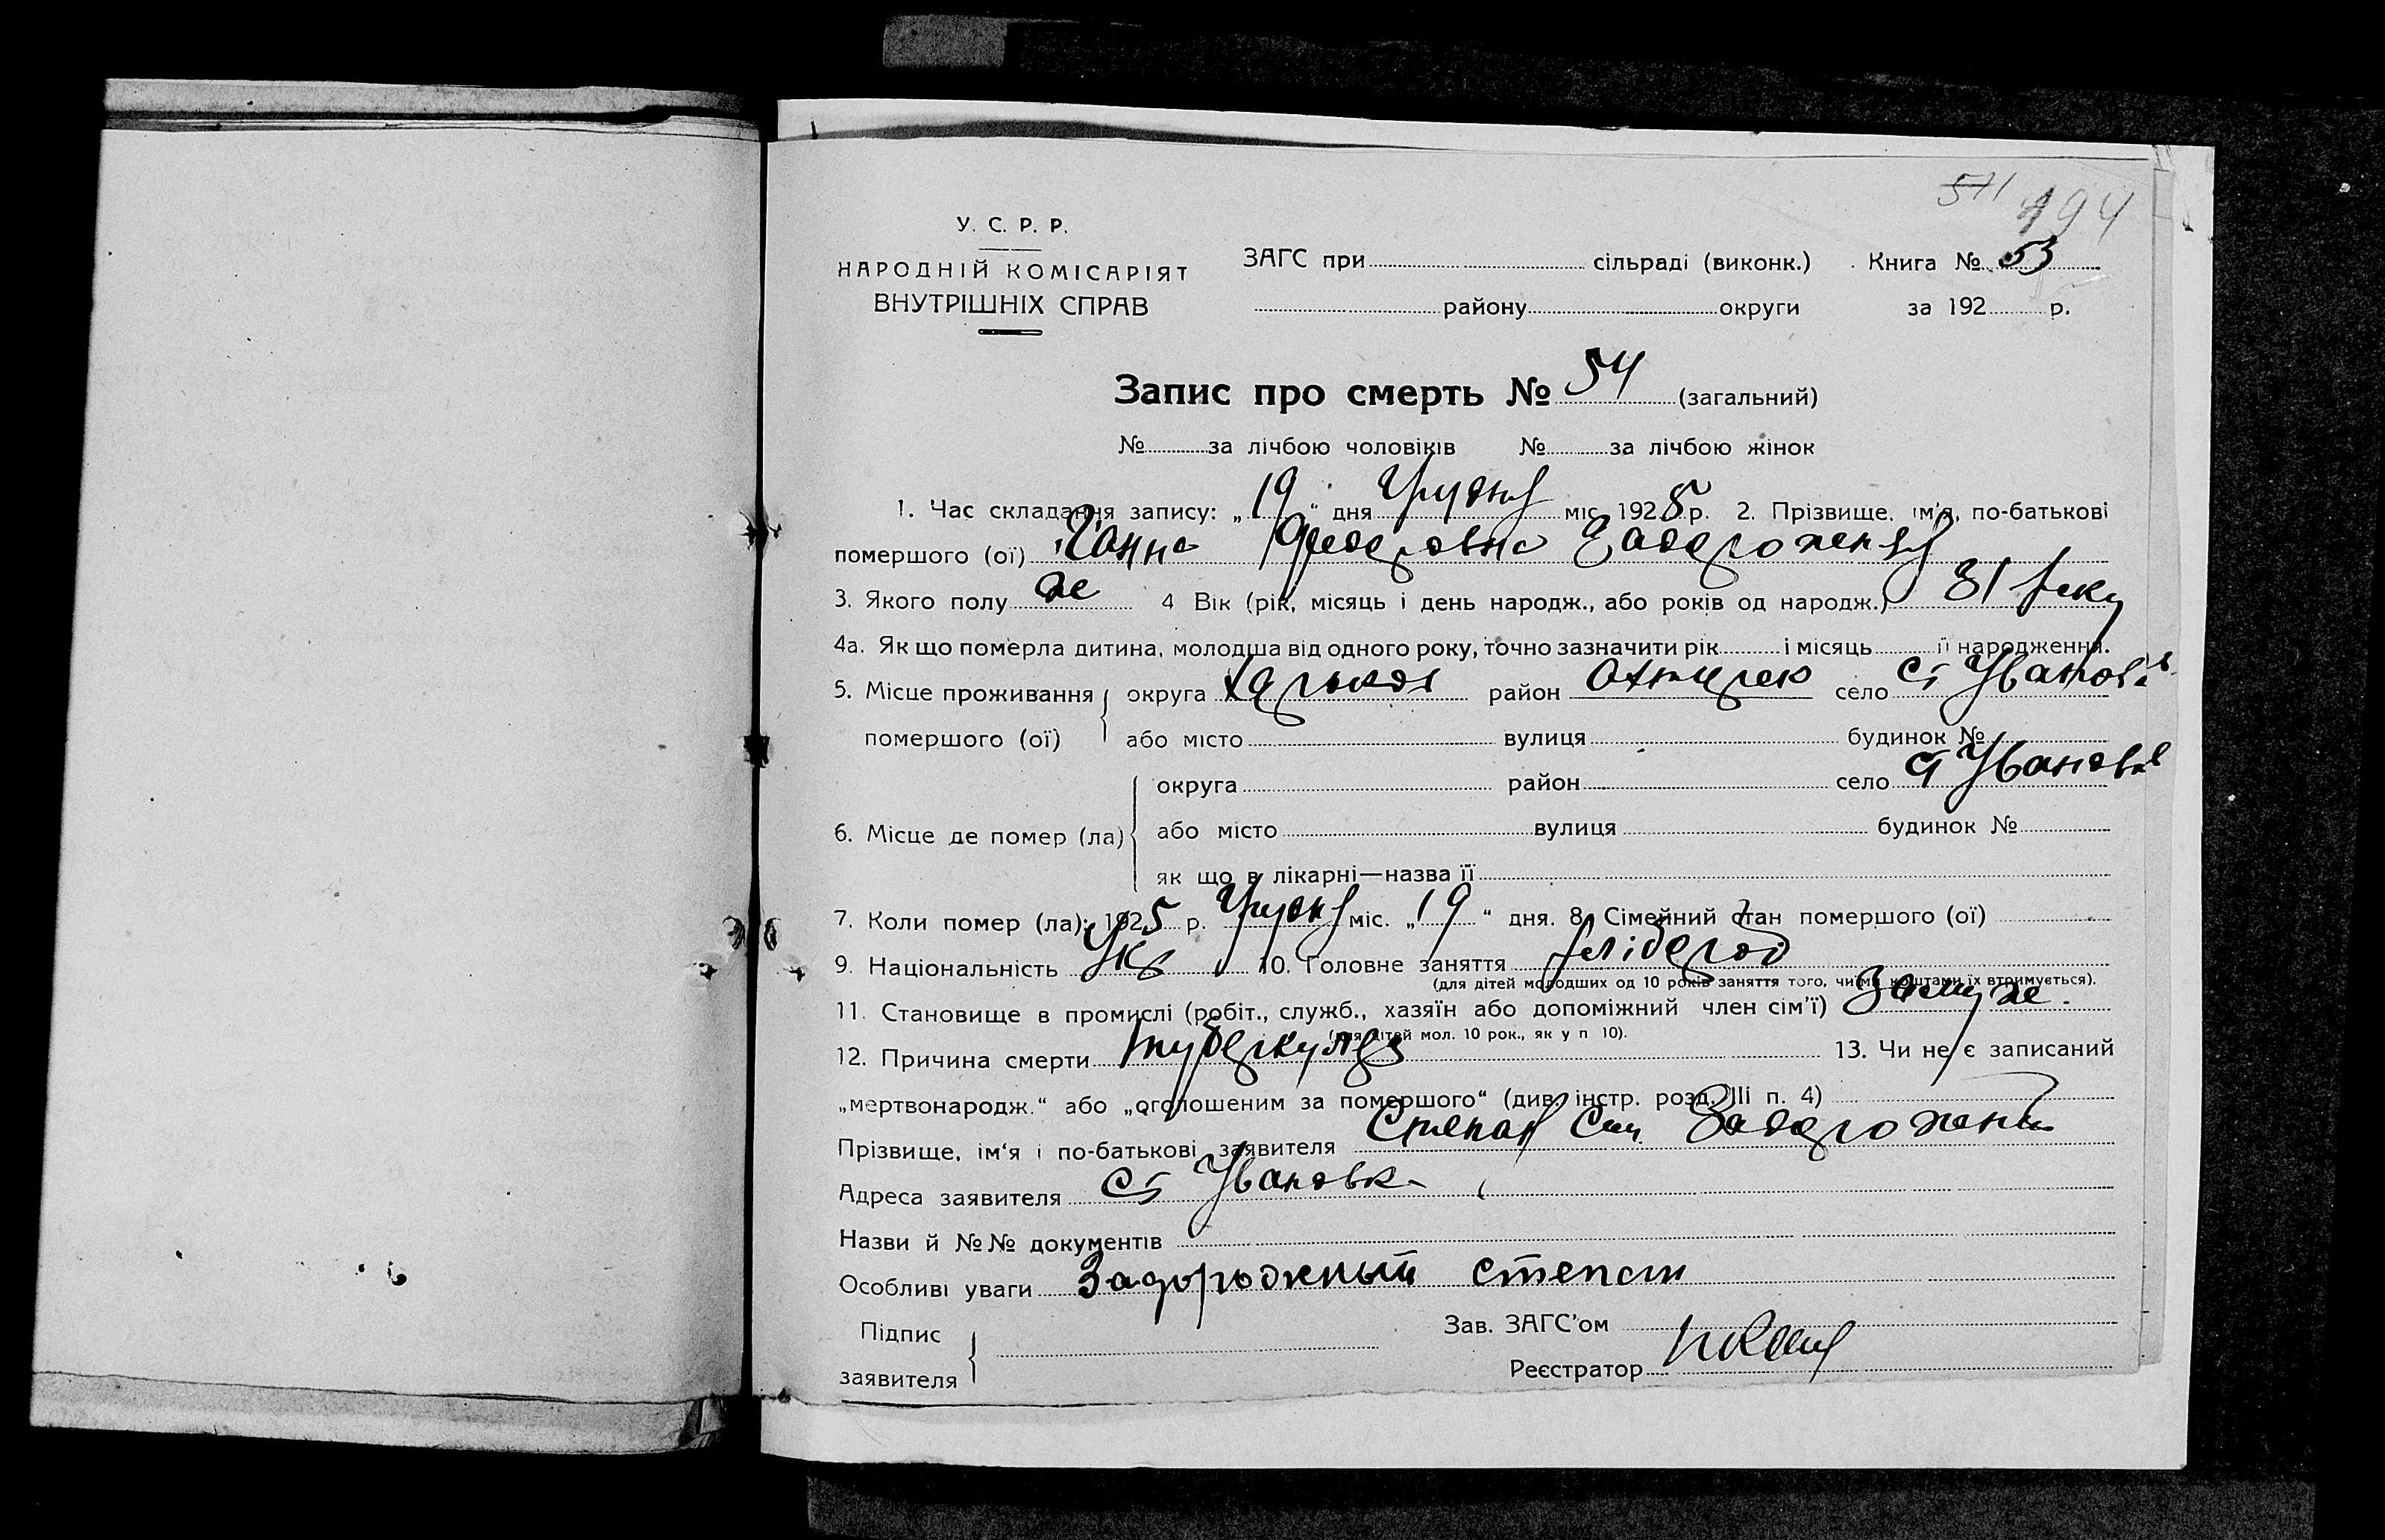 571 194
У. С. Р. Р.
НАРОДНІЙ КОМІСАРІЯТ
ВНУТРІШНІХ СПРАВ
ЗАГС при сільраді (виконк.) Книга № 53
району округи за 192 р.
Запис про смерть № 54 (загальний)
№ за лічбою чоловіків № за лічбою жінок
1. Час складання запису: „19“ дня Грудня міс. 1925 р. 2. Прізвище, ім'я, по-батькові
помершого (ої) Ганна Федоровна Задорожня
3. Якого полу же 4 Вік (рік, місяць і день народж., або років од народж.) 31 року
4а. Як що померла дитина, молодша від одного року, точно зазначити рік і місяць її народження.
5. Місце проживання округа Харьков район Охтирск село Ст Ивановка
помершого (ої) або місто вулиця будинок №
округа район село Ст Ивановка
6. Місце де помер (ла) або місто вулиця будинок №
як що в лікарні—назва її
7. Коли помер (ла): 1925 р. Грудня міс. „19“ дня. 8. Сімейний стан помершого (ої)
9. Національність Укр 10. Головне заняття хлібороб
(для дітей молодших од 10 років заняття того, чиїми коштами їх втримується).
11. Становище в промислі (робіт., служб., хазяїн або допоміжний член сім'ї) Замуже.
(для дітей мол. 10 рок., як у п 10).
12. Причина смерти туберкульоз 13. Чи не є записаний
„мертвонародж.“ або „оголошеним за помершого“ (див. інстр. розд. III п. 4)
Прізвище, ім'я і по-батькові заявителя Степан Сем. Задорожний
Адреса заявителя Ст Ивановка
Назви й №№ документів
Особливі уваги Задорожный Степан
Підпис
заявителя
Зав. ЗАГС'ом
Реєстратор